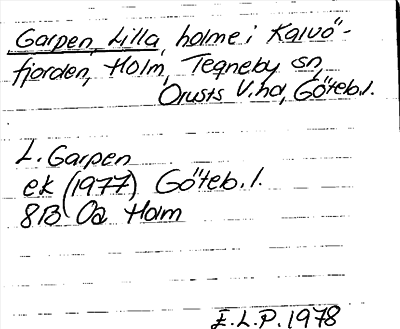 Garpen, Lilla, holme i Kalvö-
fjorden, Holm, Tegneby sn,
Orusts V. hd, Göteb. l.
L. Garpen
ek (1977) Göteb. l.
8B 0a Holm
E.L.P. 1978